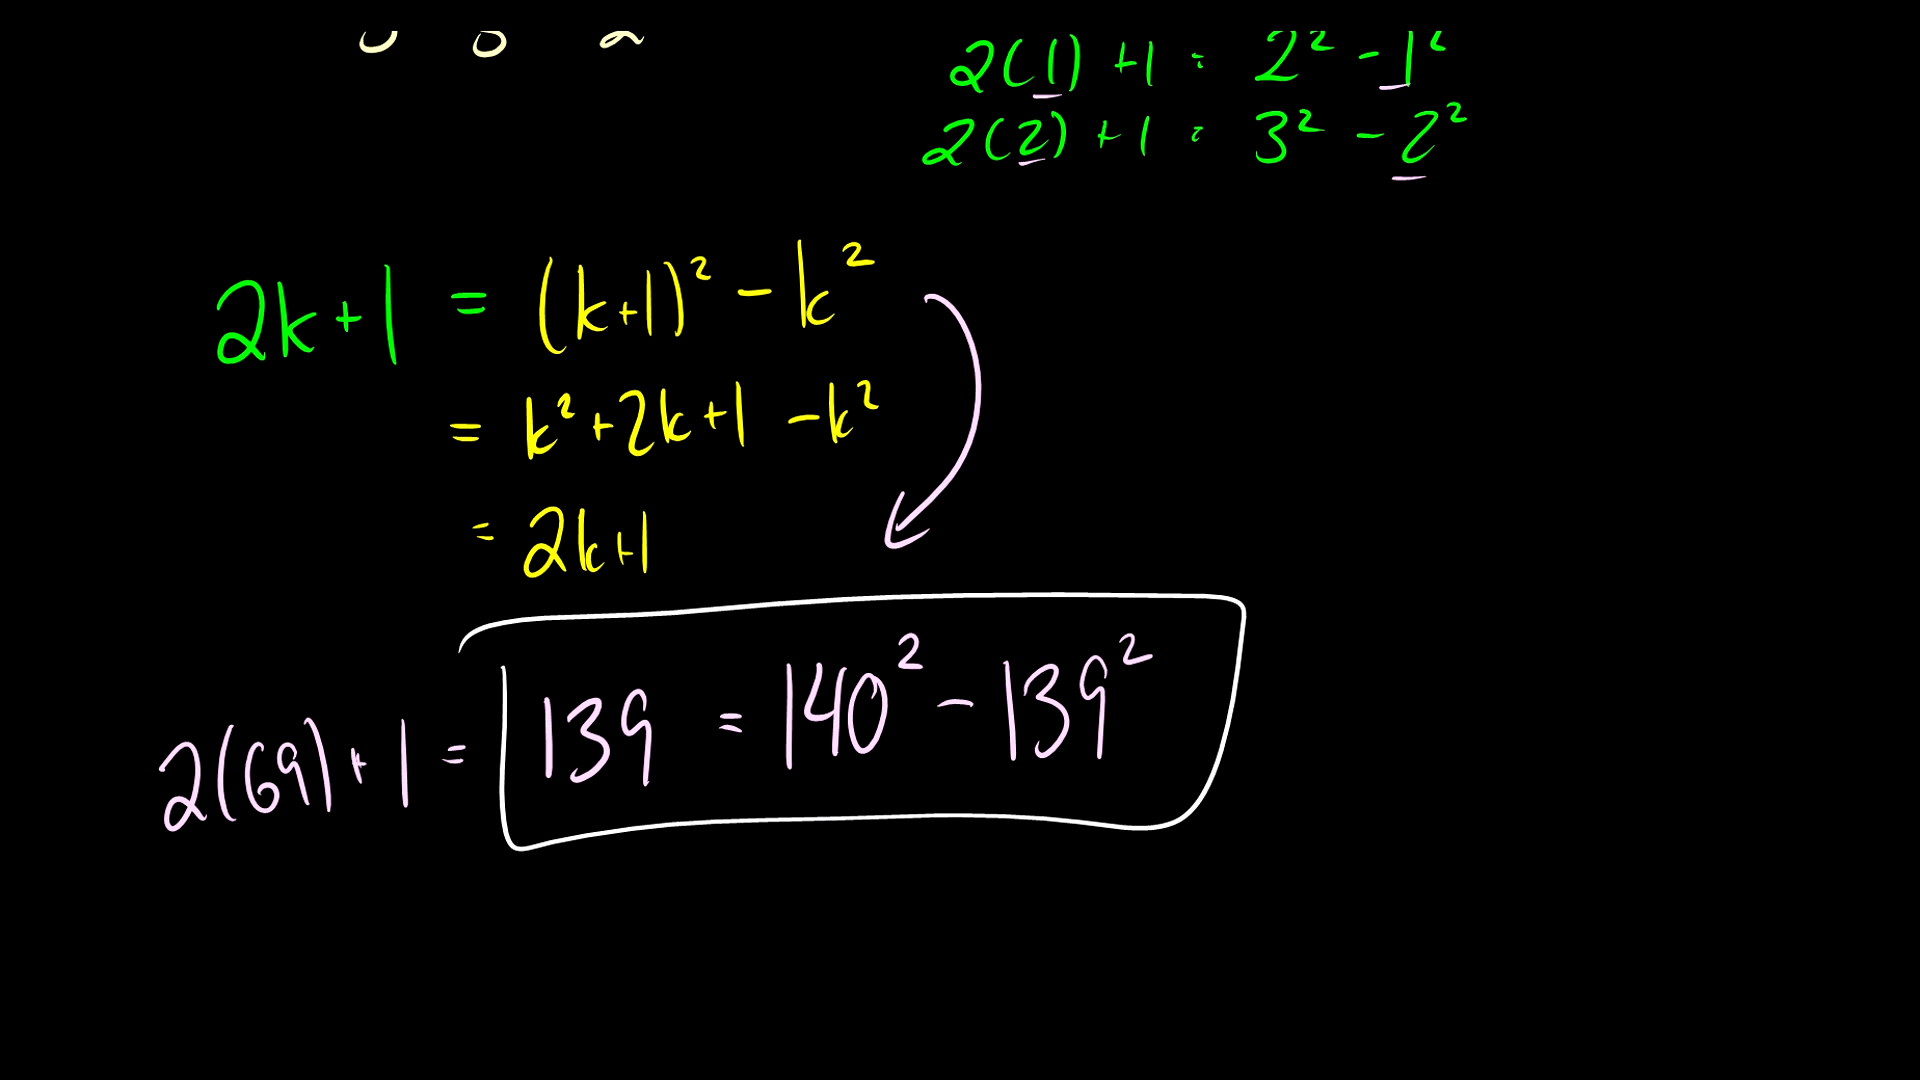 2(1) + 1 = 2² - 1²
2(2) + 1 = 3² - 2²
2k+1 = (k+1)² - k²
= k² + 2k+1 - k²
= 2k+1
2(69) + 1 = 139 = 140² - 139²